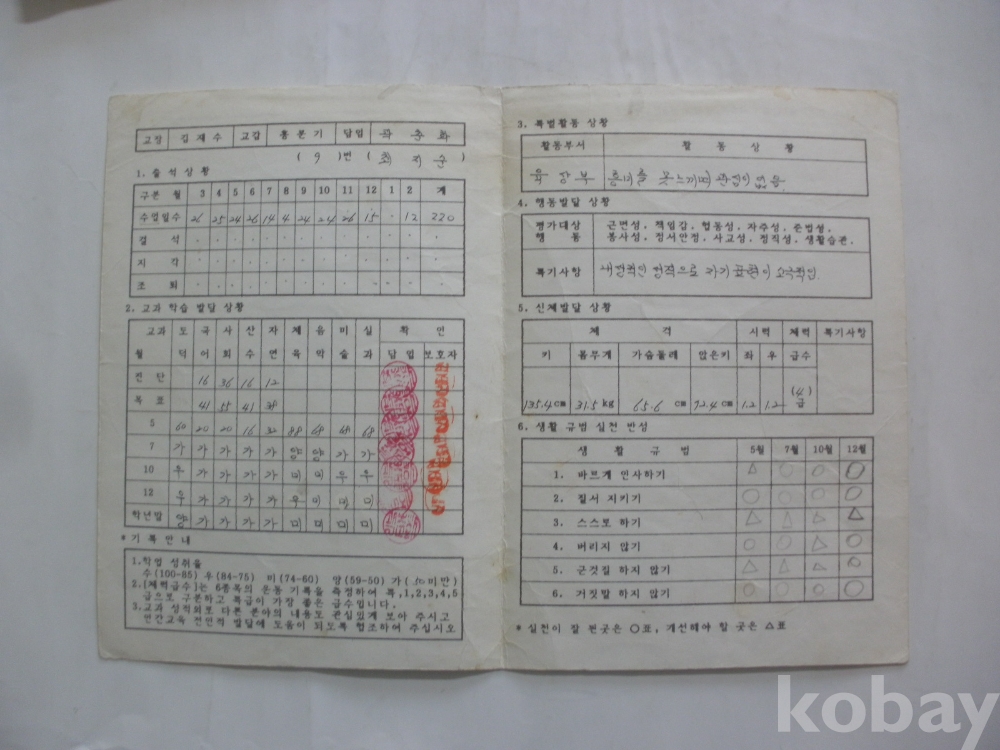 교장 김재수 교감 홍본기 담임 좌충화
(9)번 (최지순)
1. 출석 상황
구분 월 3 4 5 6 7 8 9 10 11 12 1 2 계
수업일수 26 25 24 26 14 4 24 24 26 15 · 12 220
결석 · · · · · · · · · · · · ·
지각 · · · · · · · · · · · · ·
조퇴 · · · · · · · · · · · · ·
2. 교과 학습 발달 상황
교과 도 국 사 산 자 체 음 미 실 확 인
월 덕 어 회 수 연 육 악 술 과 담임 보호자
진단 16 36 16 12
목표 41 55 41 38
5 60 20 20 16 32 88 68 68 68
7 가 가 가 가 가 양 양 가 가
10 우 가 가 가 가 미 미 우 우
12 우 가 가 가 가 우 미 미 미
학년말 양 가 가 가 가 미 미 미 미
*기록안내
1.학업 성취율
수(100-85) 우(84-75) 미(74-60) 양(59-50) 가(50미만)
2.[체력급수]는 6종목의 운동 기록을 측정하여 특,1,2,3,4,5
급으로 구분하고 특급이 가장 좋은 급수입니다.
3.교과 성적외로 다른 분야의 내용도 관심있게 보아 주시고
연간교육 전인적 발달에 도움이 되도록 협조하여 주십시오
3. 특별활동 상황
활동부서 활 동 상 황
육상부 흥미를 못느끼며 관심이 없음.
4. 행동발달 상황
평가대상 근면성, 책임감, 협동성, 자주성, 준법성,
행 동 봉사성, 정서안정, 사교성, 정직성, 생활습관.
특기사항 내면적인 성격으로 자기 표현이 소극적임.
5. 신체발달 상황
체 격 시력 체력 특기사항
키 몸무게 가슴둘레 앉은키 좌 우 급수
135.4cm 31.5kg 65.6 cm 72.4cm 1.2 1.2 (4)급
6. 생활 규범 실천 반성
생 활 규 범 5월 7월 10월 12월
1. 바르게 인사하기 △ ○ ○ ○
2. 질서 지키기 ○ ○ ○ ○
3. 스스로 하기 △ △ △ △
4. 버리지 않기 ○ ○ △ ○
5. 군것질 하지 않기 △ ○ △ ○
6. 거짓말 하지 않기 ○ ○ ○ ○
* 실천이 잘 된곳은 ○표, 개선해야 할 곳은 △표
kobay